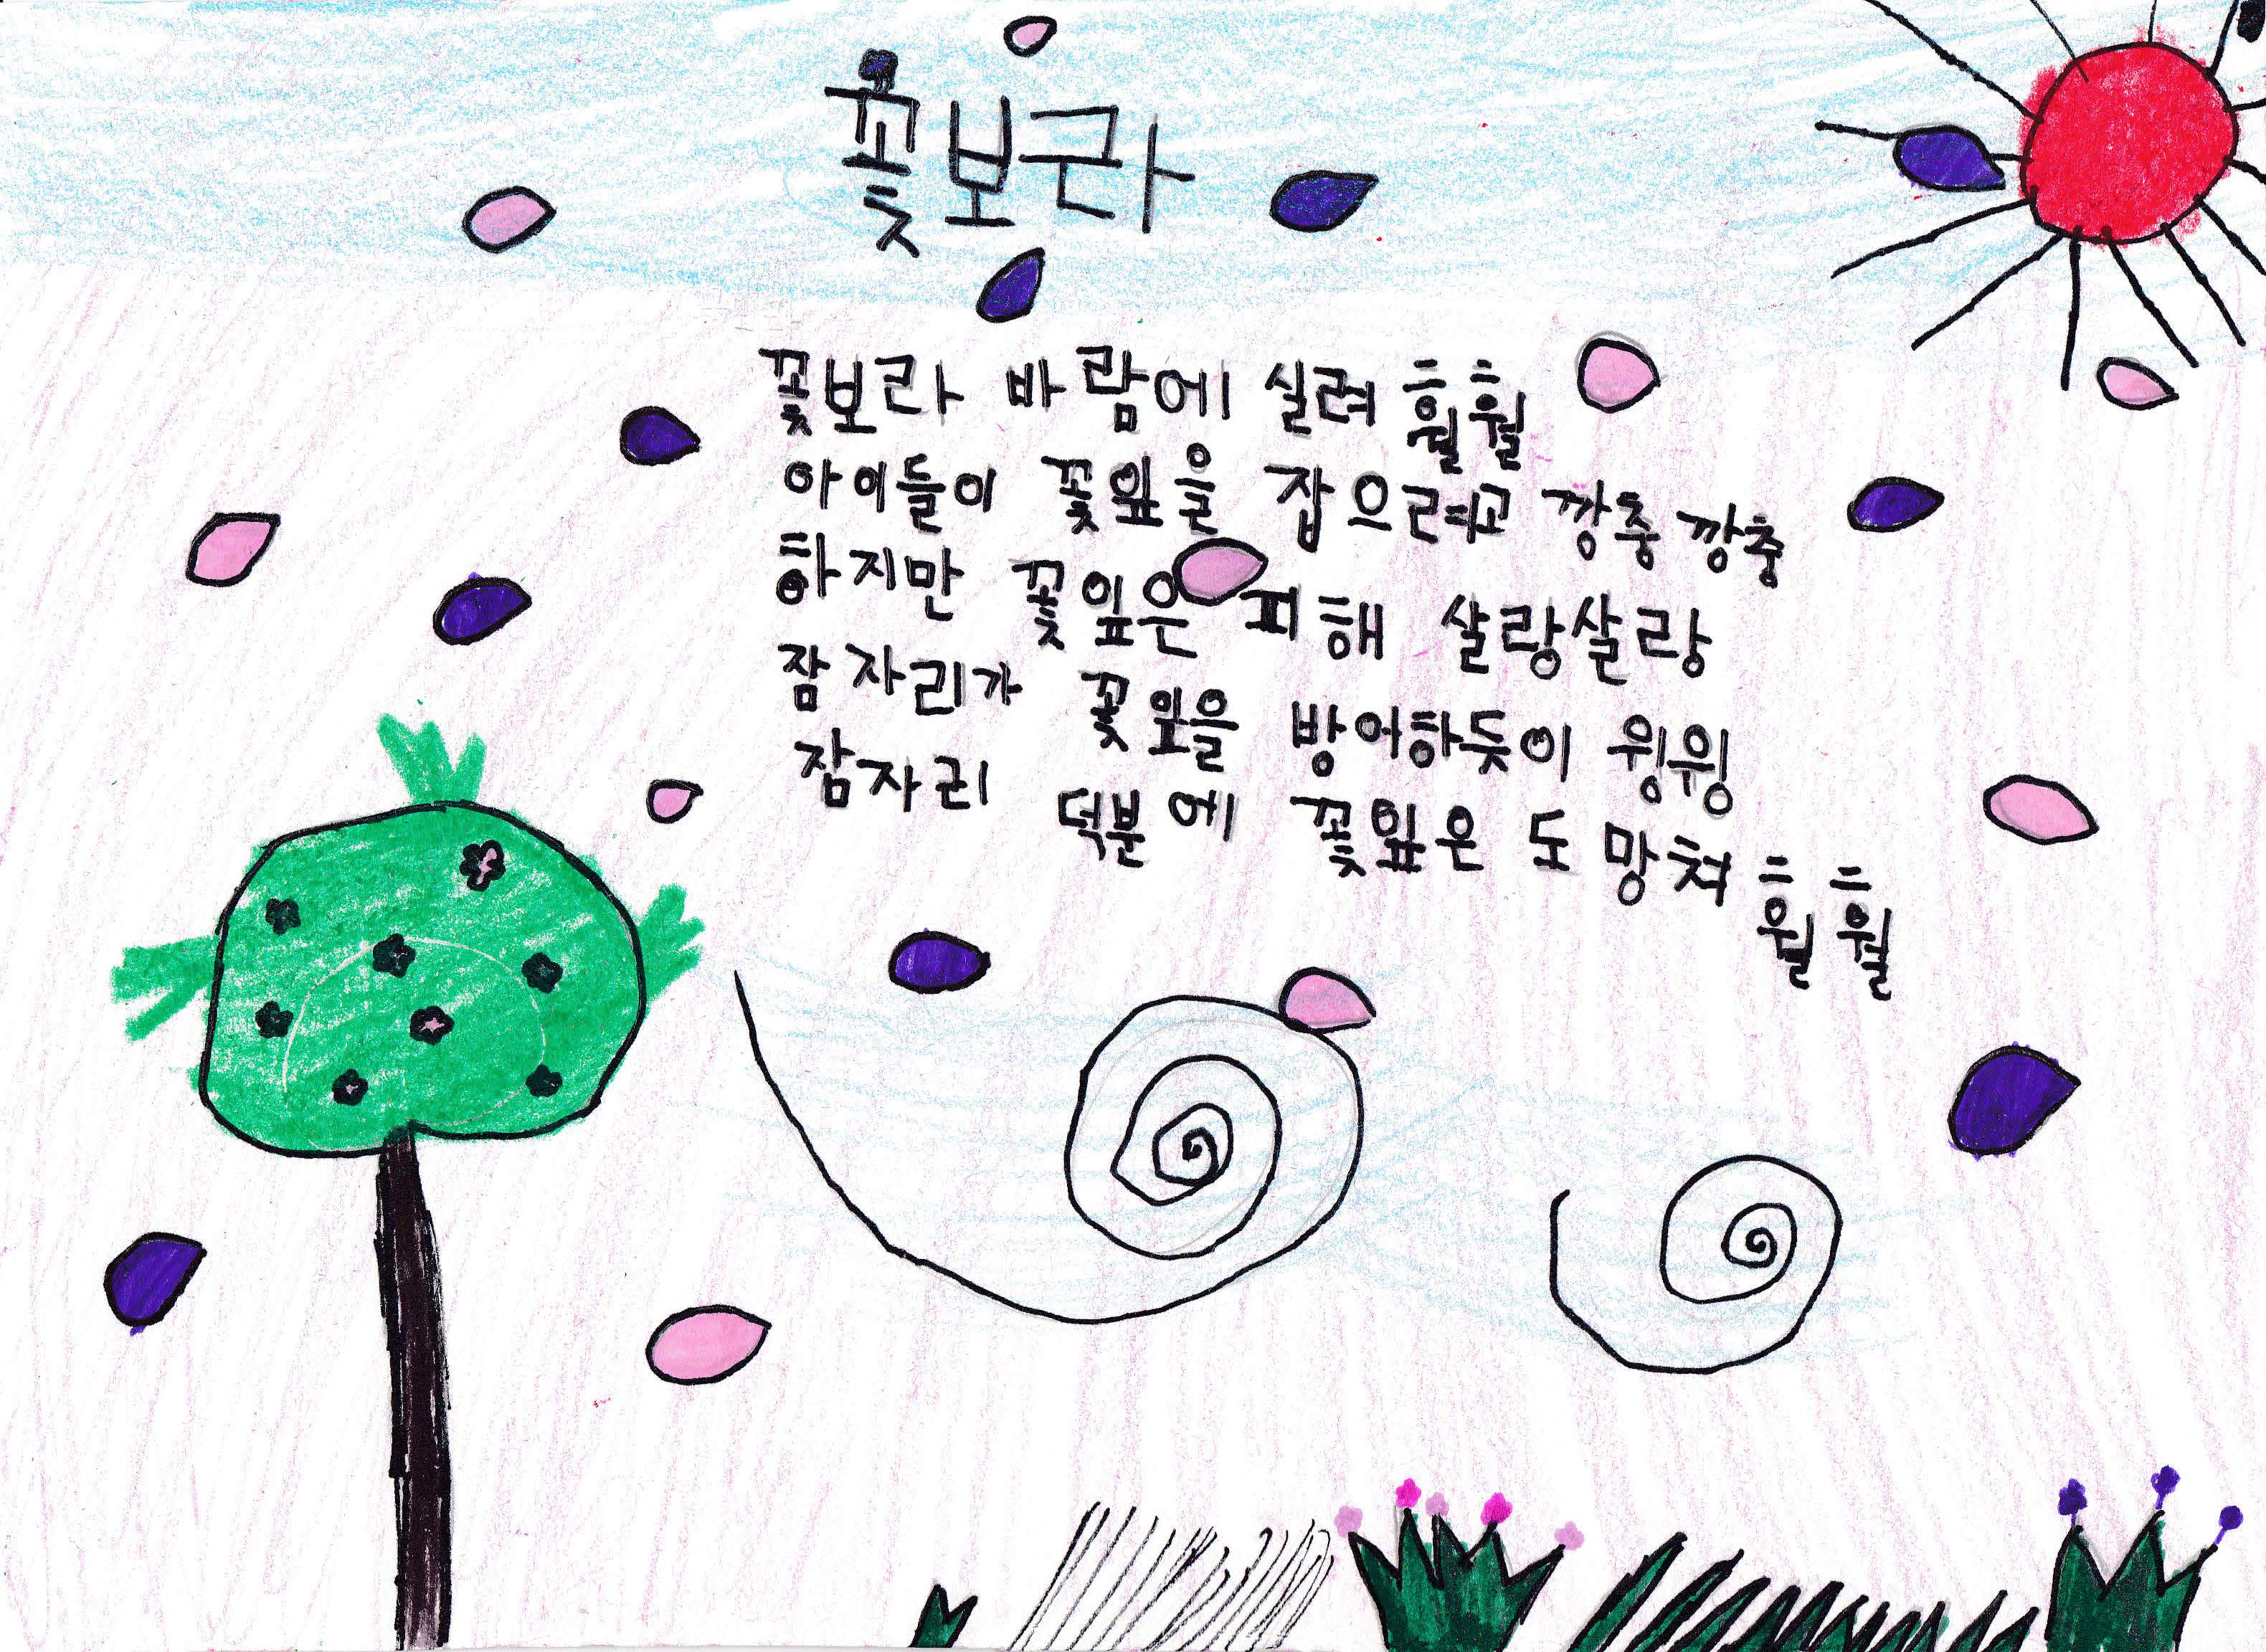 꽃보라
꽃보라 바람에 실려 훨훨
아이들이 꽃잎을 잡으려고 깡충 깡충
하지만 꽃잎은 피해 살랑살랑
잠자리가 꽃잎을 방어하듯이 윙윙
잠자리 덕분에 꽃잎은 도망쳐 훨훨